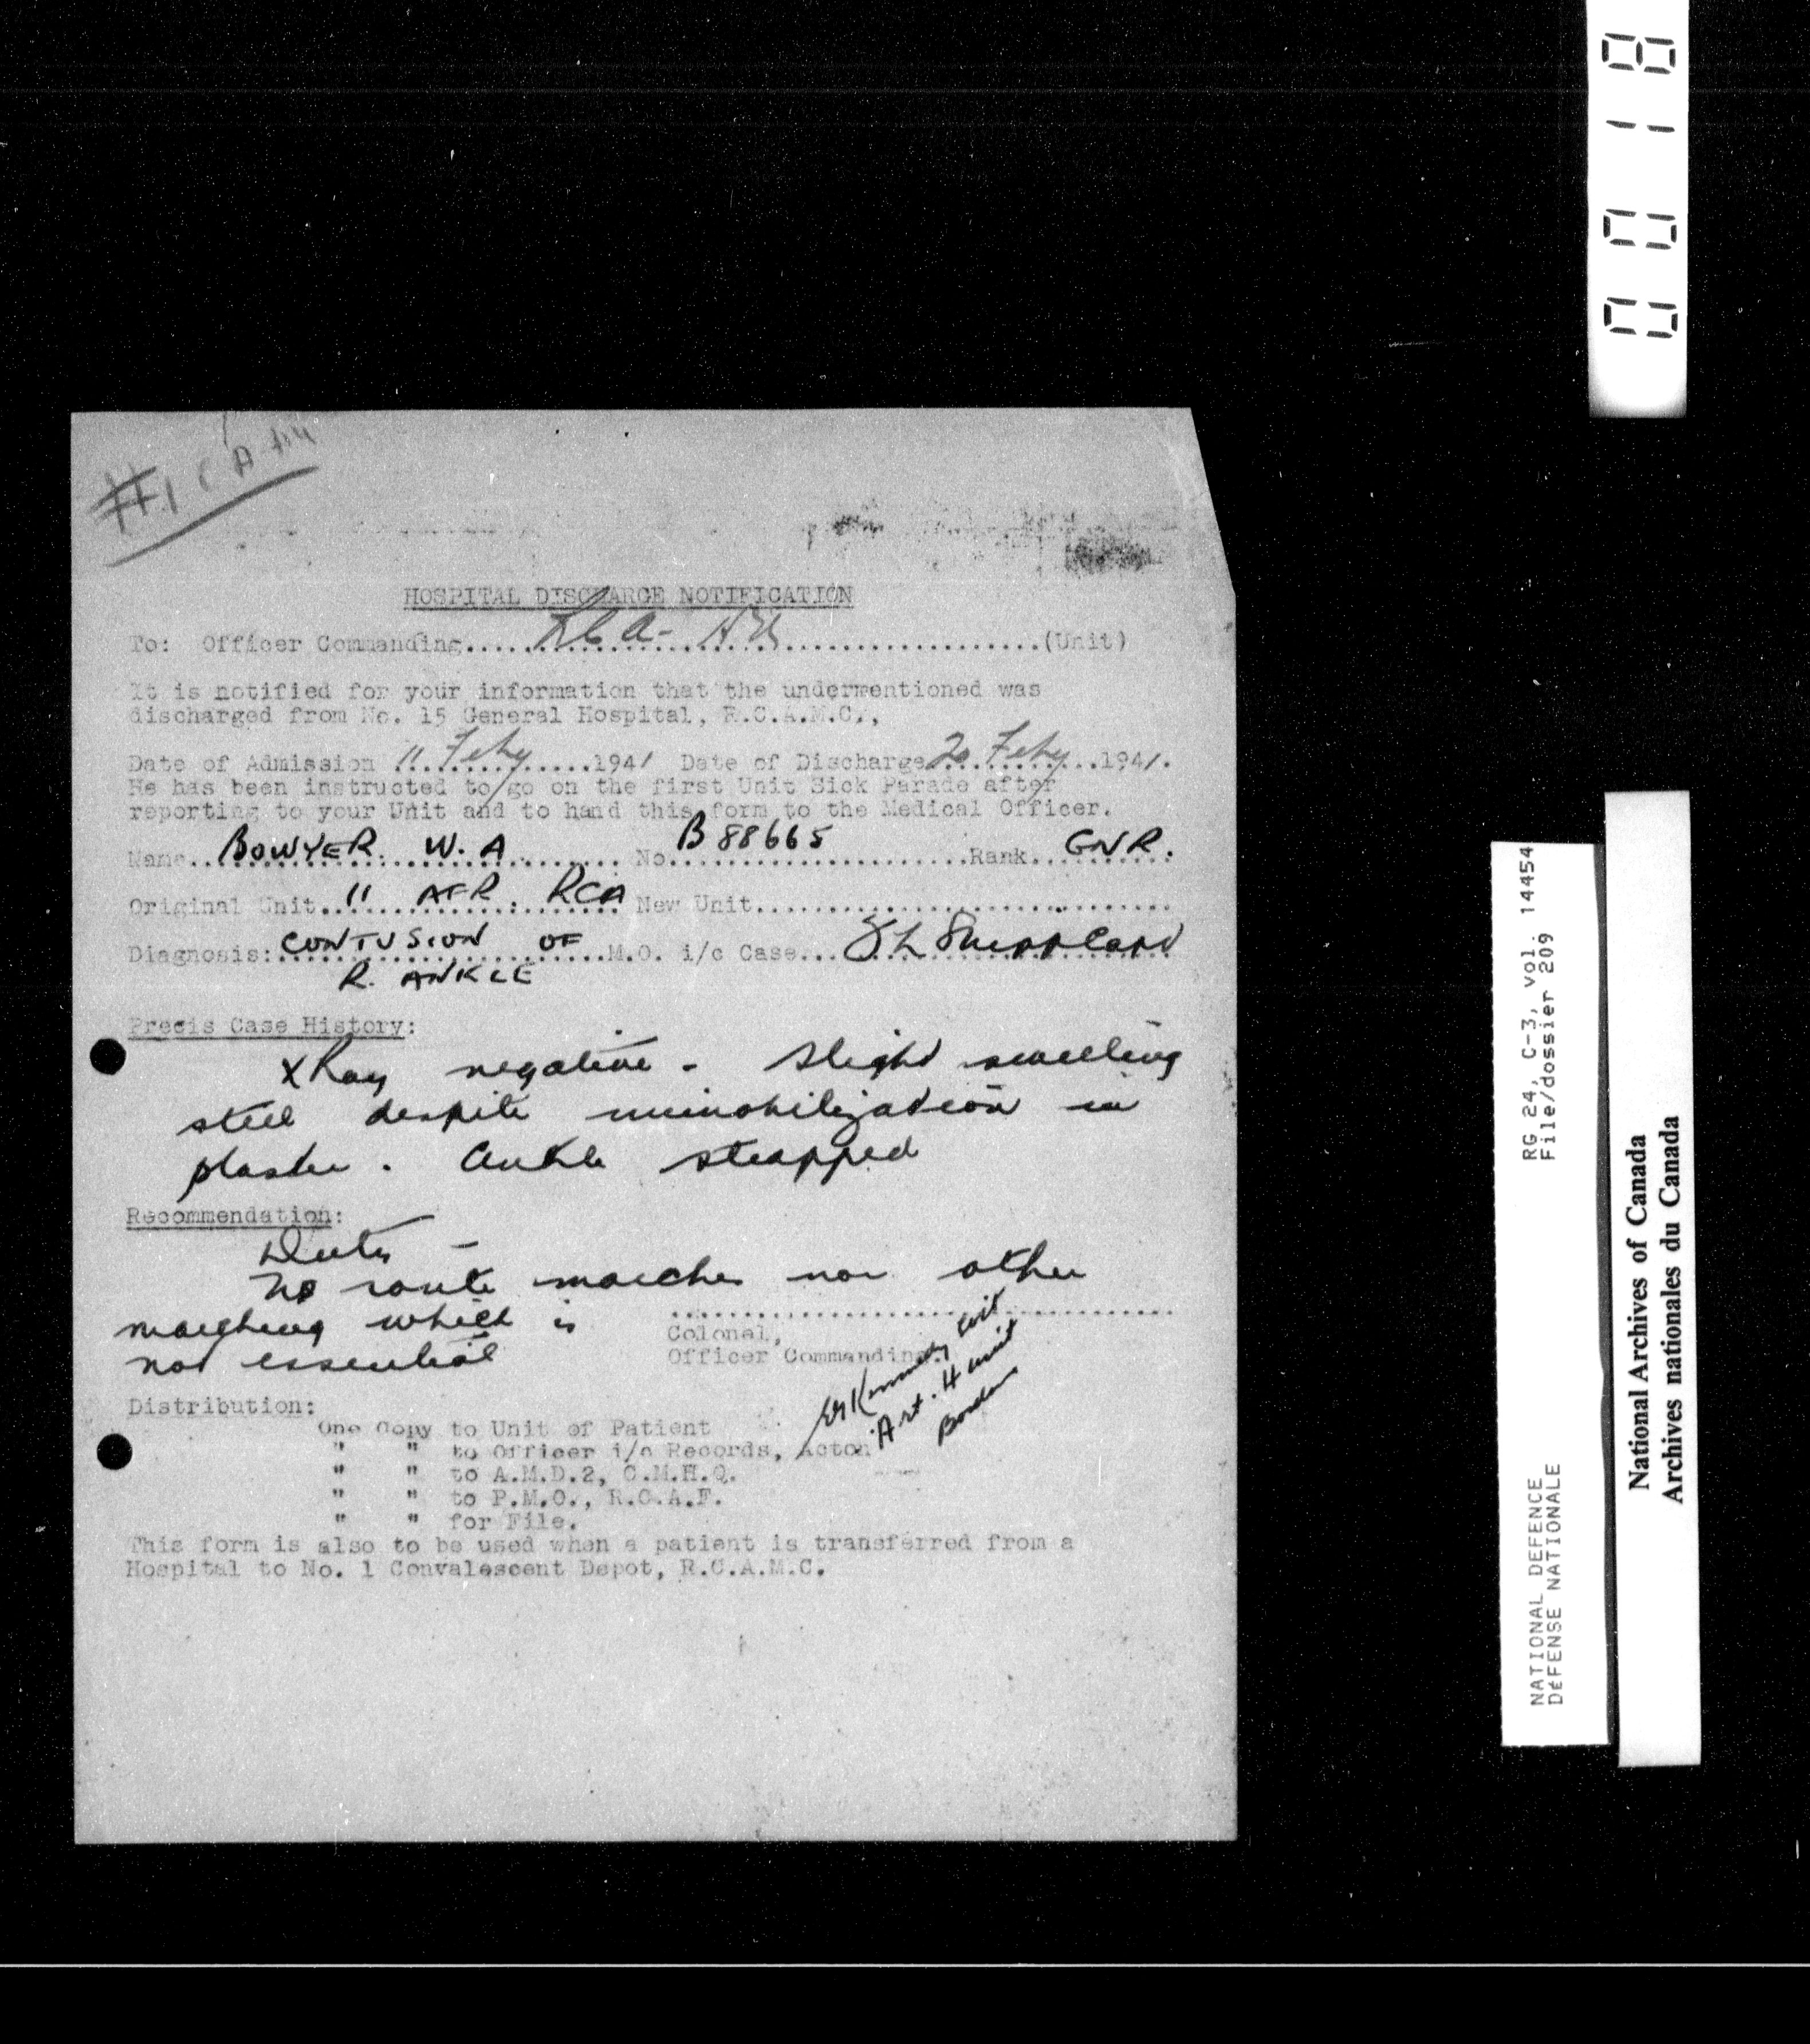 #1
HOSPITAL DISCHARGE NOTIFICATION
To: Officer Commanding.....R.C.A.....(Unit)
It is notified for your information that the undermentioned was
discharged from No. 15 General Hospital, R.C.A.M.C.,
Date of Admission 11 Feby 1941 Date of Discharge 20 Feby 1941.
He has been instructed to go on the first Unit Sick Parade after
reporting to your Unit and to hand this form to the Medical Officer.
Name.. BOWYER. W. A No. B 88665 Rank. GNR.
Original Unit.. 11 AFR. RCA New Unit
Diagnosis: CONTUSION OF M.O. i/c Case...
R. ANKLE
Precis Case History:
XRay negative - Slight swelling
still despite immobilization in
plaster. Ankle strapped
Recommendation:
Duty -
No route marches nor other
marching which is
not essential
Colonel,
Officer Commanding.
Kennedy
Art. H unit
Borden
Distribution:
One Copy to Unit of Patient
" " to Officer i/c Records, Acton
" " to A.M.D.2, C.M.H.Q.
" " to P.M.O., R.C.A.F.
" " for File.
This form is also to be used when a patient is transferred from a
Hospital to No. 1 Convalescent Depot, R.C.A.M.C.
0018
RG 24, C-3, vol. 14454
File/dossier 209
NATIONAL DEFENCE
DÉFENSE NATIONALE
National Archives of Canada
Archives nationales du Canada